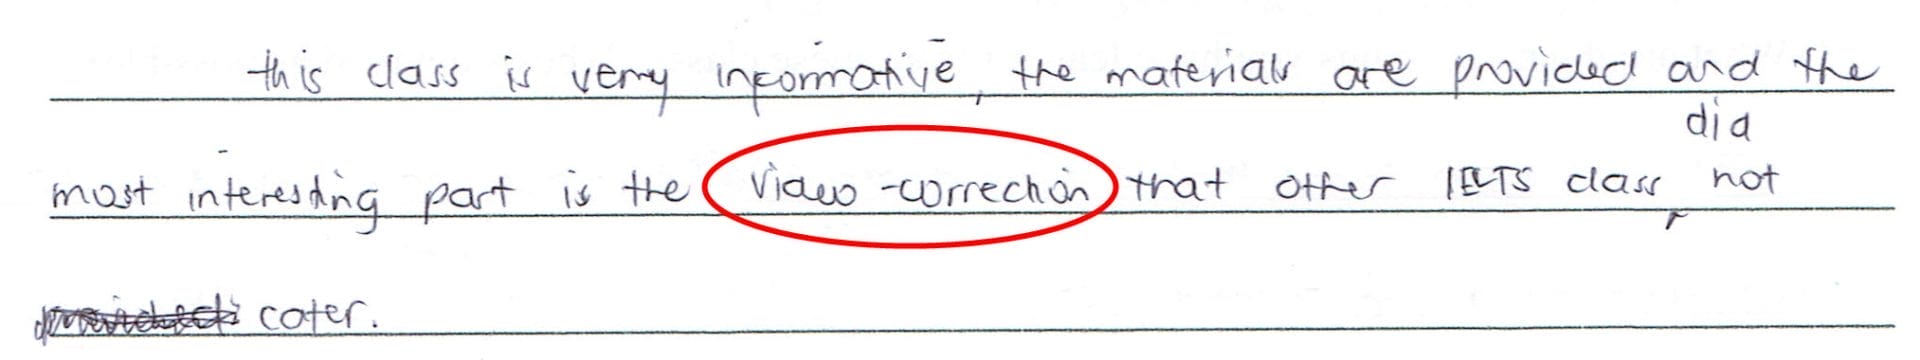 this class is very informative, the materials are provided and the
most interesting part is the video-correction that other IELTS class did not
cater.